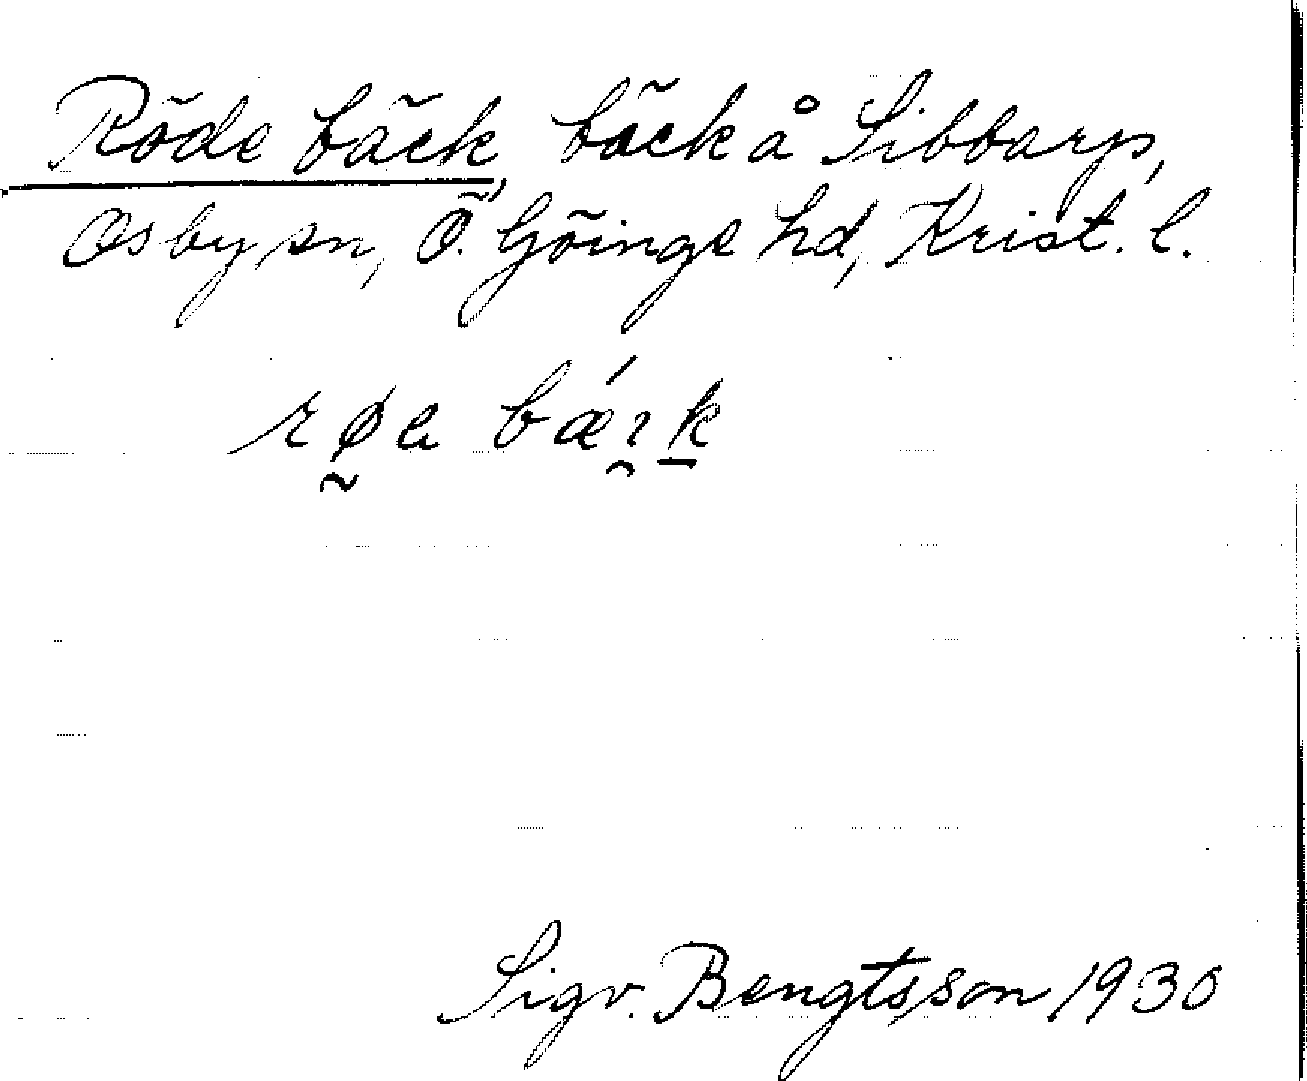 Röde bäck, bäck å Sibbarp,
Osby sn, Ö. Göinge hd, Krist. l.
røe bæɿk
Sigv. Bengtsson 1930